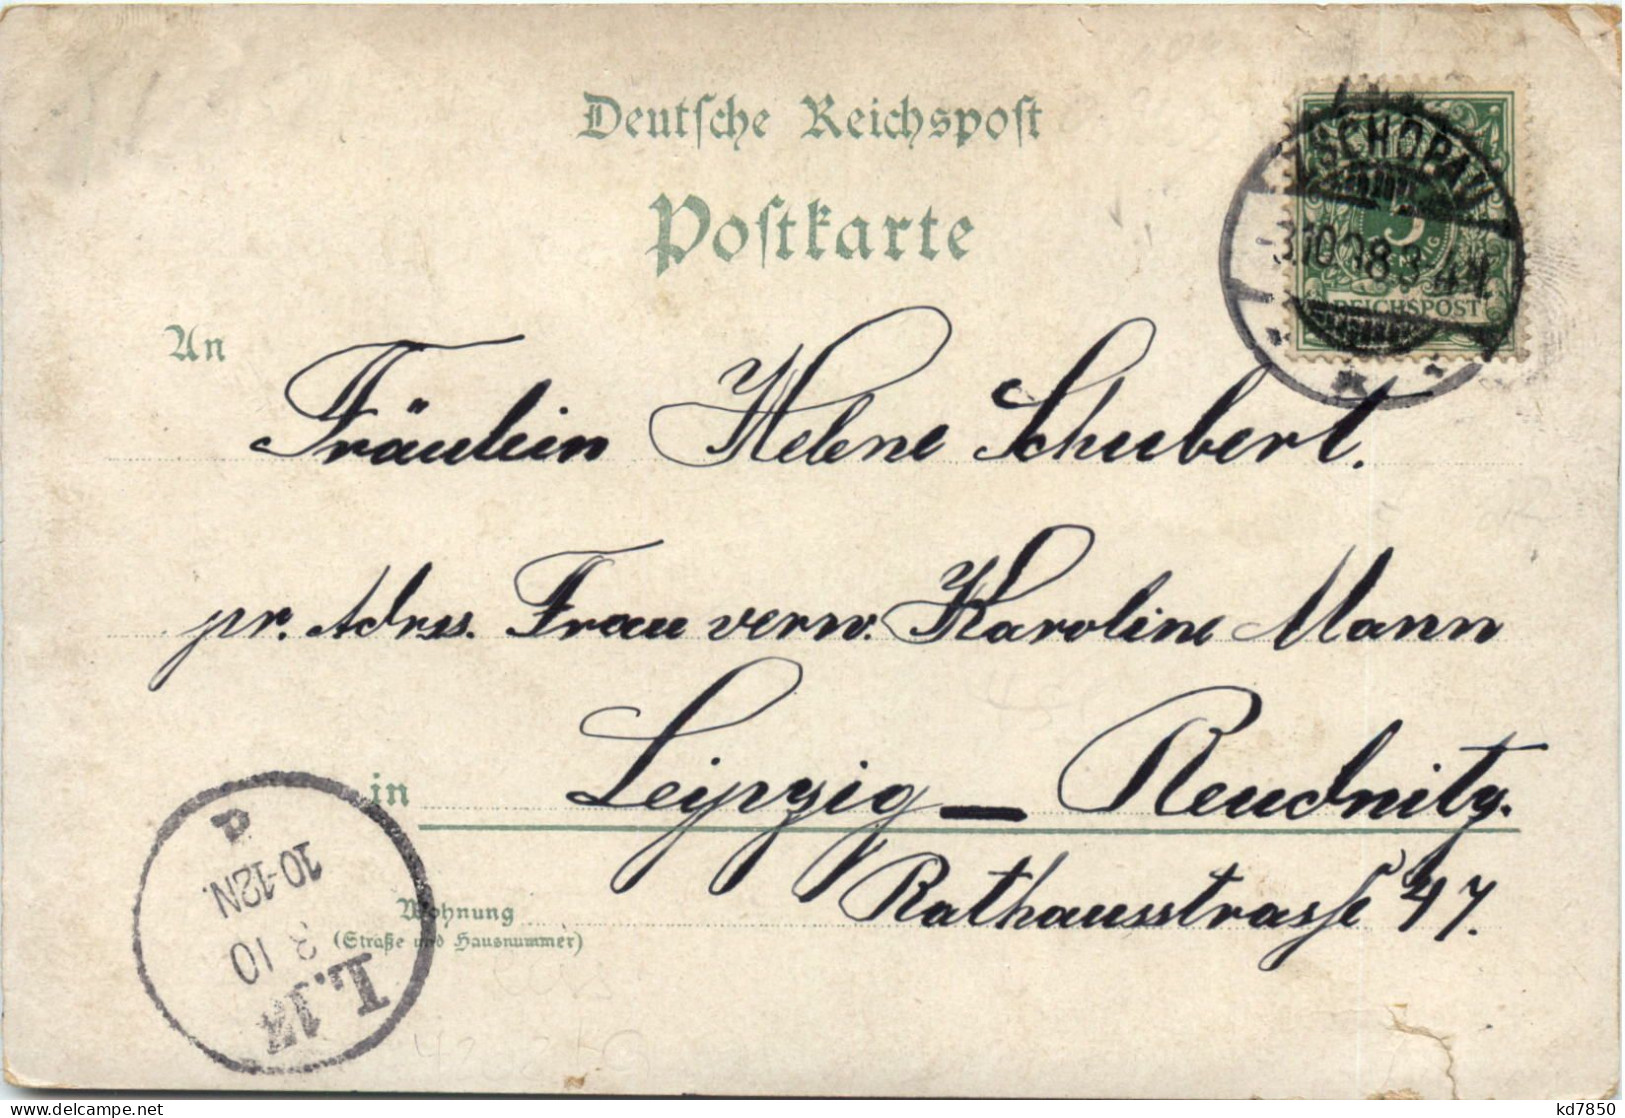 Deutsche Reichspost
Postkarte
ZSCHOPAU
3.10.98.3-4N.
5
REICHSPOST
An
Fräulein Helene Schubert.
pr. Adrss. Frau verw. Karoline Mann
in Leipzig – Reudnitz.
Rathausstrasse 47.
Wohnung
(Straße und Hausnummer)
L.14
3 10
10-12N.
delcampe.net
kd7850